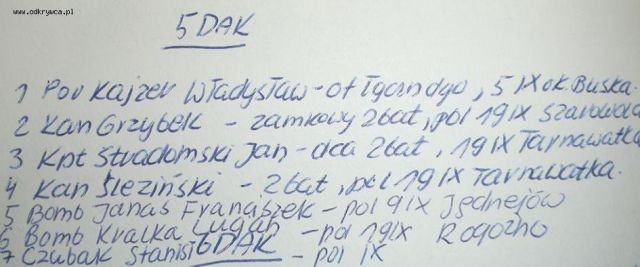 www.odkrywca.pl
5 DAK
1 Por Kajzer Władysław - of łączn dyo, 5 IX ok. Buska.
2 Kan Grzybek - zamkowy 2 bat, pol 19 IX Szarowola
3 Kpt Stradomski Jan - dca 2 bat, 19 IX Tarnawatka
4 Kan Śleziński - 2 bat, pol 19 IX Tarnawatka.
5 Bomb Janas Franciszek - pol 9 IX Jędrzejów
6 Bomb Kralka Lucjan - pol 19 IX Rogoźno
7 Czubak Stanisł - pol IX
6 DAK